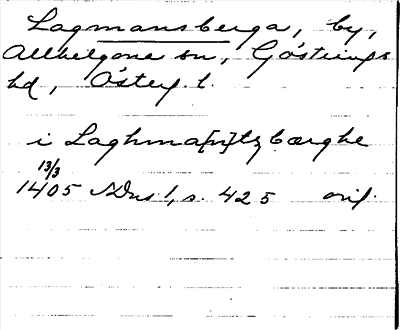 Lagmansberga, by,
Allhelgona sn, Göstrings
hd, Östergl.
i Laghma[n]tz bærghe
13/3
1405 SDns 1, s. 425 orig.